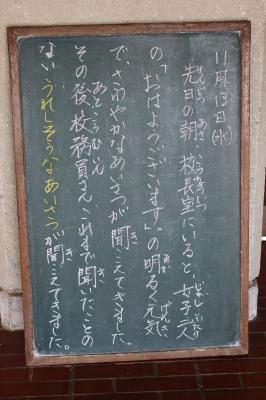 11月13日(水)
先日の朝、校長室にいると、女子二人
の「おはようございます」の明るく元気
で、さわやかなあいさつが聞こえてきました。
その後、校務員さん、これまで聞いたことの
ない うれしそうなあいさつが聞こえてきました。